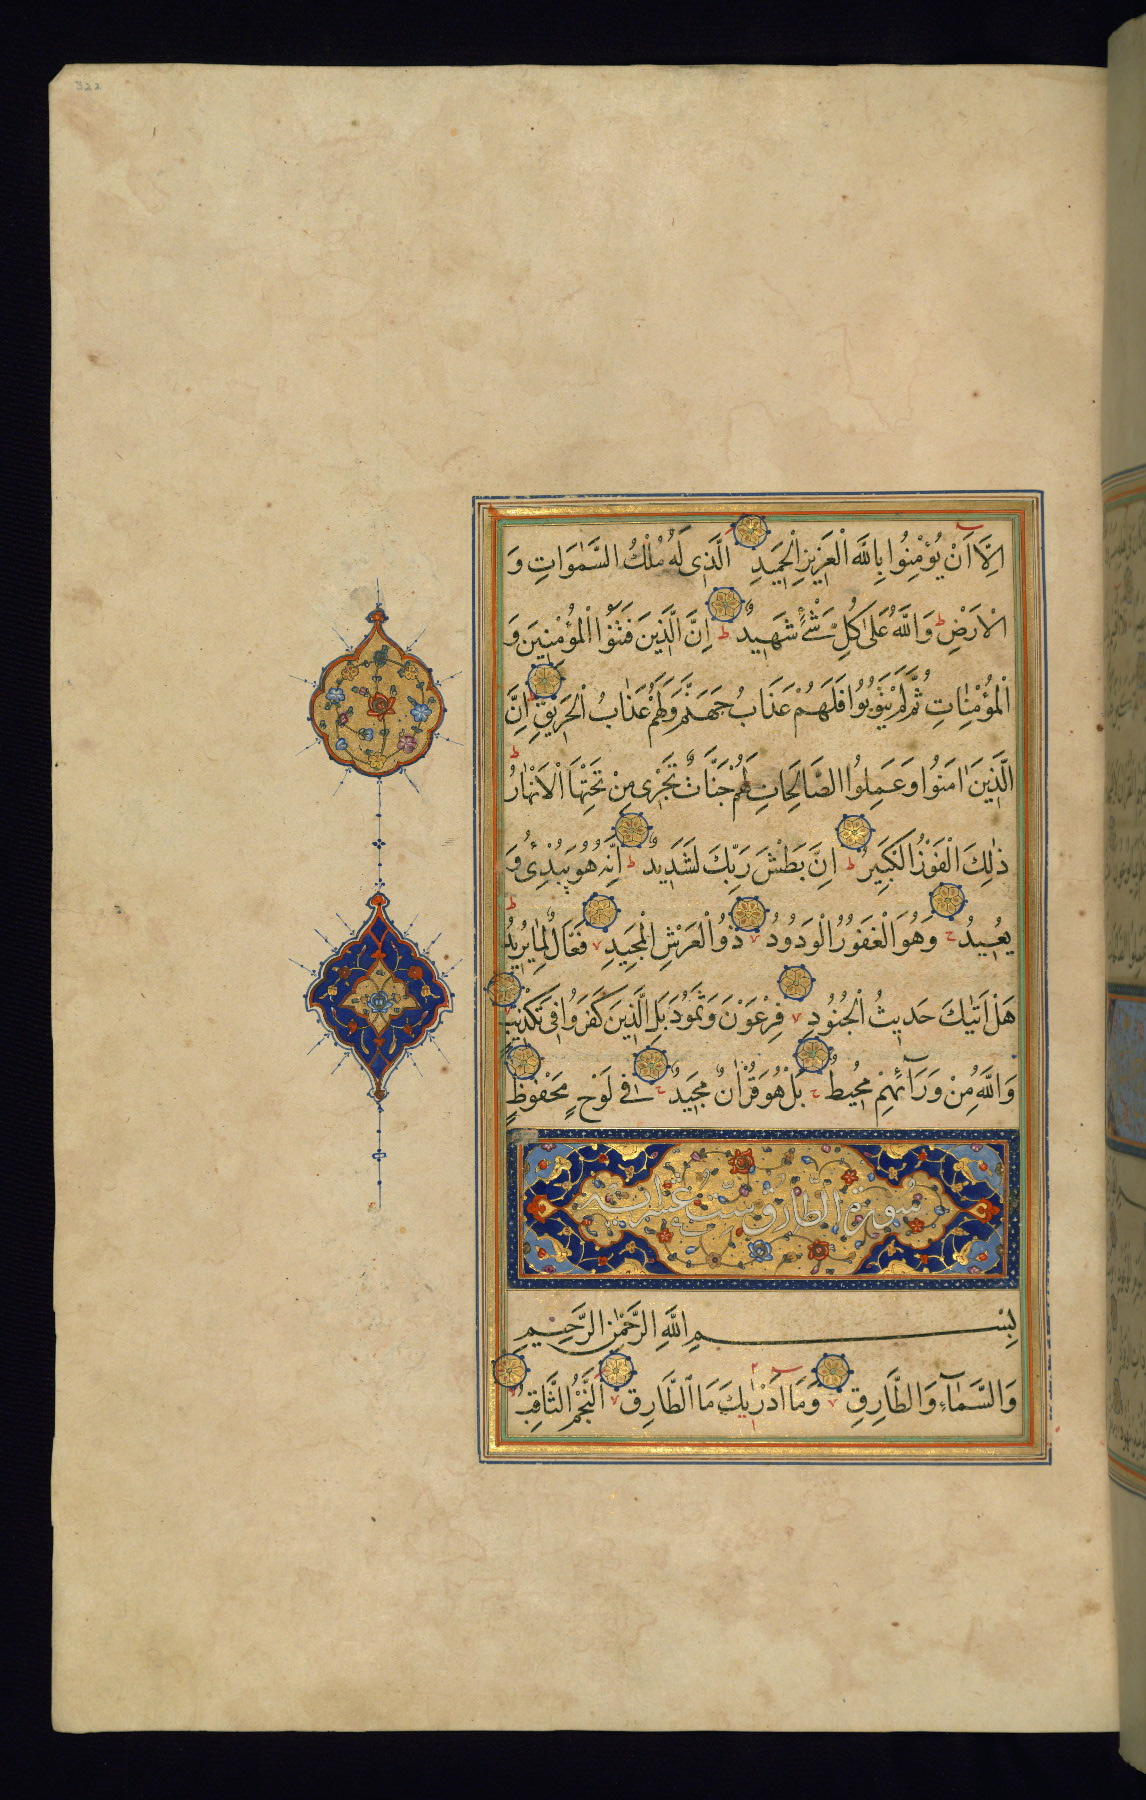 322
اِلَّا اَنْ يُؤْمِنُوا بِاللَّهِ الْعَزِيزِ الْحَمِيدِ الَّذِى لَهُ مُلْكُ السَّمٰوَاتِ وَ
الْاَرْضِ ط وَاللَّهُ عَلىٰ كُلِّ شَىْءٍ شَهِيدٌ ط اِنَّ الَّذِينَ فَتَنُوا الْمُؤْمِنِينَ وَ
الْمُؤْمِنَاتِ ثُمَّ لَمْ يَتُوبُوا فَلَهُمْ عَذَابُ جَهَنَّمَ وَلَهُمْ عَذَابُ الْحَرِيقِ اِنَّ
الَّذِينَ اٰمَنُوا وَعَمِلُوا الصَّالِحَاتِ لَهُمْ جَنَّاتٌ تَجْرِى مِنْ تَحْتِهَا الْاَنْهَارُ ط
ذٰلِكَ الْفَوْزُ الْكَبِيرُ ط اِنَّ بَطْشَ رَبِّكَ لَشَدِيدٌ ط اِنَّهُ هُوَ يُبْدِئُ وَ
يُعِيدُ ج وَهُوَ الْغَفُورُ الْوَدُودُ ۷ ذُو الْعَرْشِ الْمَجِيدِ ۷ فَعَّالٌ لِمَا يُرِيدُ ط
هَلْ اَتٰيكَ حَدِيثُ الْجُنُودِ ۷ فِرْعَوْنَ وَثَمُودَ بَلِ الَّذِينَ كَفَرُوا فِى تَكْذِيبٍ
وَاللَّهُ مِنْ وَرَآئِهِمْ مُحِيطٌ ج بَلْ هُوَ قُرْاٰنٌ مَجِيدٌ ج فِى لَوْحٍ مَحْفُوظٍ
سورة الطارق ست عشر اية
بِسْمِ اللَّهِ الرَّحْمٰنِ الرَّحِيمِ
وَالسَّمَآءِ وَالطَّارِقِ ۷ وَمَا اَدْرٰيكَ مَا الطَّارِقُ ۷ اَلنَّجْمُ الثَّاقِبُ ۷